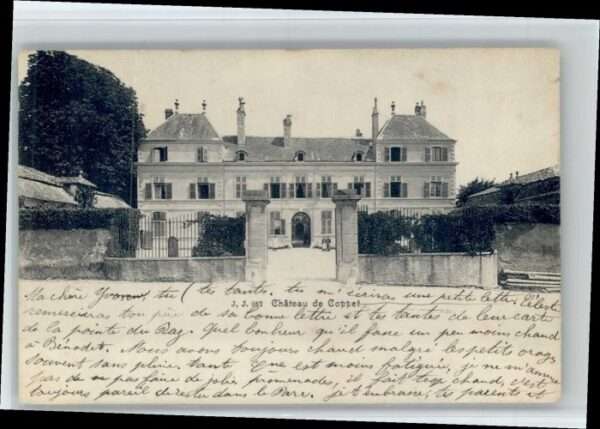 J. J. 862 Château de Coppet
Ma chère Yvonne, tu (tes tante, tu m'écriras une petite lettre, tu
remercieras ton père de sa bonne lettre et tes tantes de leur carte
de la pointe du Raz. Quel bonheur qu'il fasse un peu moins chaud
à Bénodet. Nous avons toujours chaud malgré les petits orages
souvent sans pluie, tante est moins fatiguée, je ne m'ennuie
pas de ne pas faire de jolies promenades, il fait trop chaud, c'est
toujours pareil de rester dans le Parc. Je t'embrasse, tes parents et